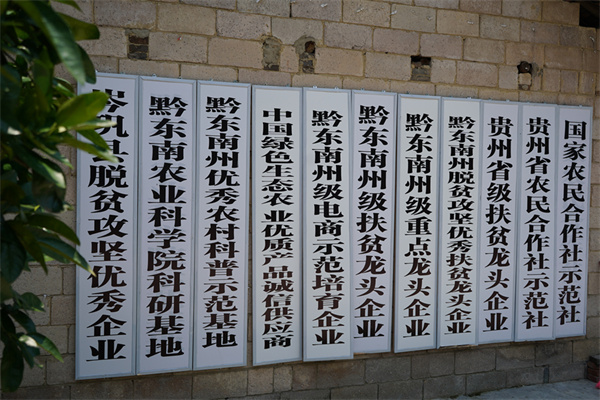 国家农民合作社示范社
贵州省农民合作社示范社
贵州省级扶贫龙头企业
黔东南州脱贫攻坚优秀扶贫龙头企业
黔东南州级重点龙头企业
黔东南州级扶贫龙头企业
黔东南州级电商示范培育企业
中国绿色生态农业优质产品诚信供应商
黔东南州优秀农村科普示范基地
黔东南农业科学院科研基地
岑巩县脱贫攻坚优秀企业